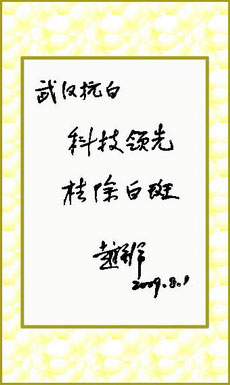 武汉抗白
科技领先
祛除白斑
2009.8.1